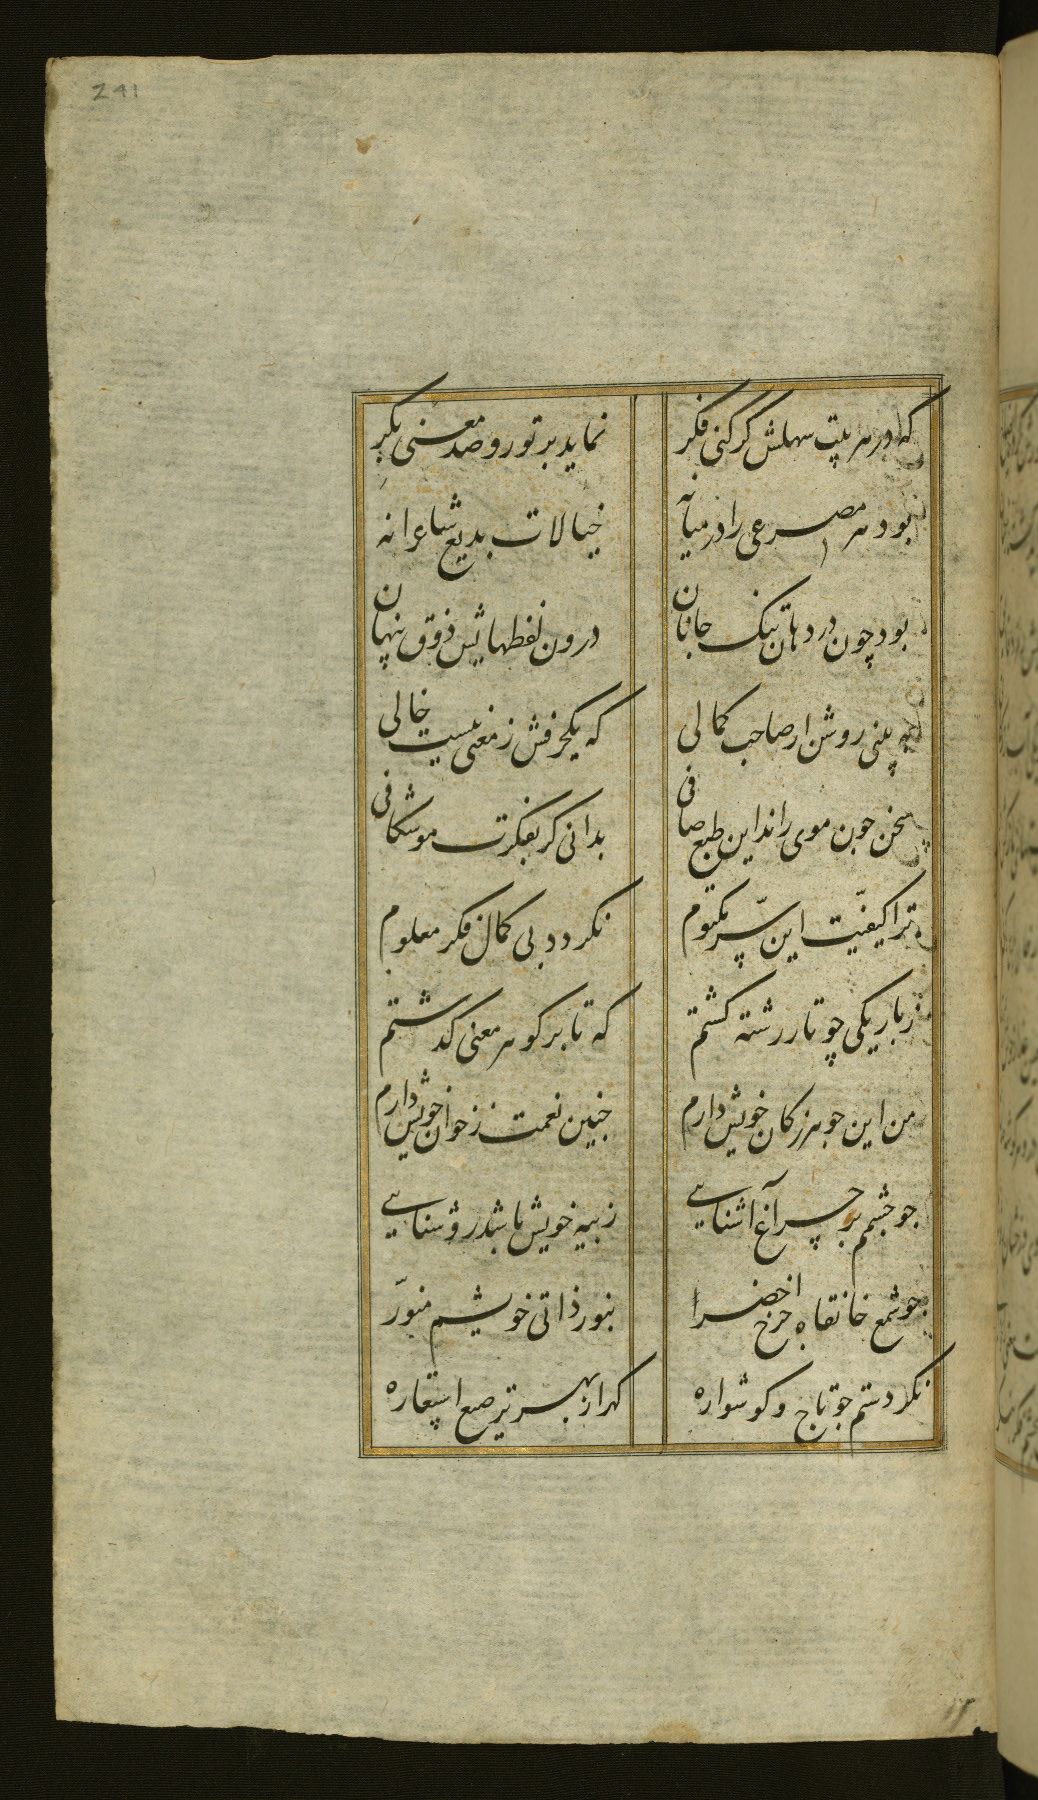 241
که در هر بیت سهلش گر کنی فکر نماید بر تو رو صد معنی بکر
بود هر مصرعی را در میانه خیالات بدیع شاعرانه
بود چون در دهان تنک جانان درون لفظهایش ذوق پنهان
به پنی روشن ار صاحب کمالی که یکحرفش ز معنی نیست خالی
سخن جون موی راند این طبع صافی بدانی کر بفکرت موشکافی
ترا کیفیّت این سّر مکتوم نکردد بی کمال فکر معلوم
ز باریکی چو تار رشته کشتم که تا بر کوهر معنی کذشتم
من این جوهر ز کان خویش دارم جنین نعمت ز خوان خویش دارم
جو جشمم بر چراغ آشنایی ز پیه خویش باشد روشنایی
جو شمع خانقاه جرخ اخضرا بنور ذاتی خویشم منوّر
نکردستم جو تاج و کوشواره کهر از بهر ترصیع استعاره